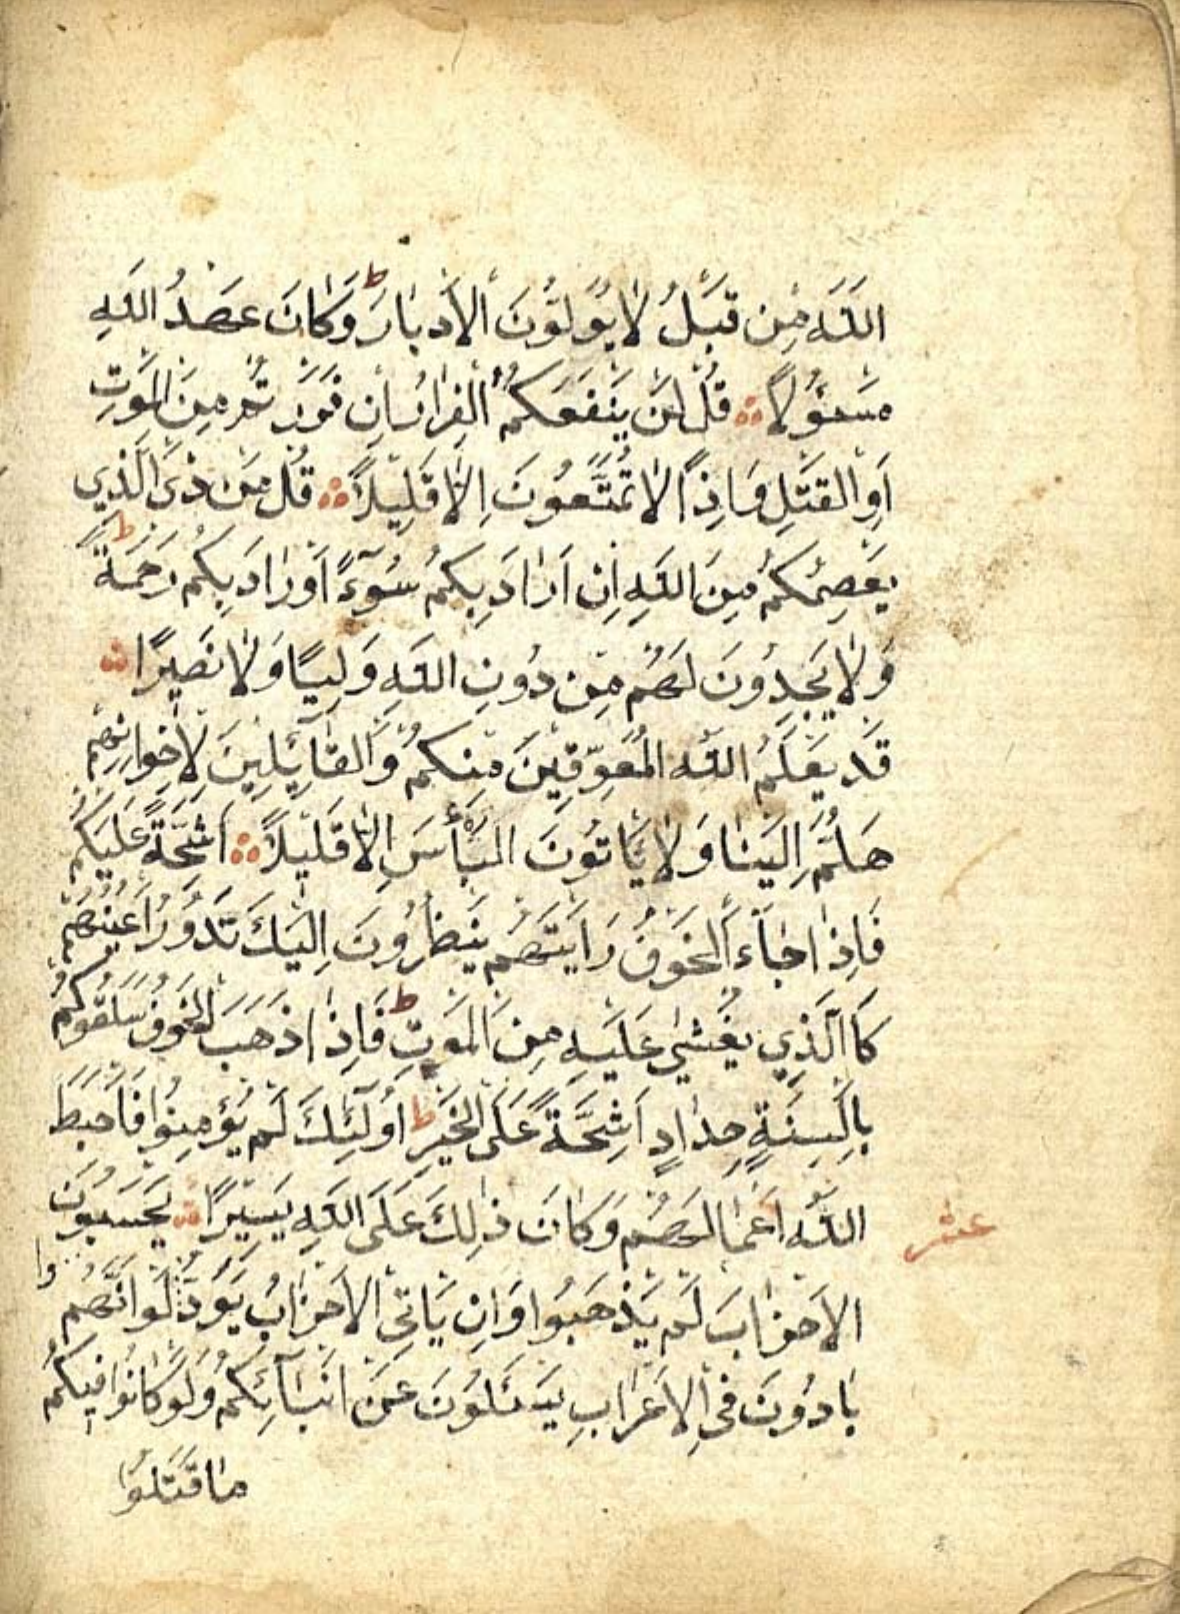 اللَّهَ مِن قَبْلُ لَا يُوَلُّونَ الْأَدْبَارَ ط وَكَانَ عَهْدُ اللَّهِ
مَسْئُولًا قُلْ لَنْ يَنْفَعَكُمُ الْفِرَارُ إِنْ فَرَرْتُمْ مِنَ الْمَوْتِ
أَوِ الْقَتْلِ وَإِذًا لَا تُمَتَّعُونَ إِلَّا قَلِيلًا قُلْ مَنْ ذَى الَّذِي
يَعْصِمُكُمْ مِنَ اللَّهِ إِنْ أَرَادَ بِكُمْ سُوءًا أَوْ رَادَ بِكُمْ رَحْمَةً ط
وَلَا يَجِدُونَ لَهُمْ مِنْ دُونِ اللَّهِ وَلِيًّا وَلَا نَصِيرًا
قَدْ يَعْلَمُ اللَّهُ الْمُعَوِّقِينَ مِنْكُمْ وَالْقَائِلِينَ لِإِخْوَانِهِمْ
هَلُمَّ إِلَيْنَا وَلَا يَأْتُونَ الْبَأْسَ إِلَّا قَلِيلًا أَشِحَّةً عَلَيْكُمْ
فَإِذَا جَاءَ الْخَوْفُ رَأَيْتَهُمْ يَنْظُرُونَ إِلَيْكَ تَدُورُ أَعْيُنُهُمْ
كَاالَّذِي يُغْشَى عَلَيْهِ مِنَ الْمَوْتِ ط فَإِذَا ذَهَبَ الْخَوْفُ سَلَقُوكُمْ
بِأَلْسِنَةٍ حِدَادٍ أَشِحَّةً عَلَى الْخَيْرِ ط أُولَئِكَ لَمْ يُؤْمِنُوا فَأَحْبَطَ
اللَّهُ أَعْمَالَهُمْ وَكَانَ ذَلِكَ عَلَى اللَّهِ يَسِيرًا يَحْسَبُونَ
عشر
الْأَحْزَابَ لَمْ يَذْهَبُوا وَإِنْ يَأْتِي الْأَحْزَابُ يَوَدُّوا لَوْ أَنَّهُمْ
بَادُونَ فِي الْأَعْرَابِ يَسْئَلُونَ عَنْ أَنْبَائِكُمْ وَلَوْ كَانُوا فِيكُمْ
مَا قَتَلُوا